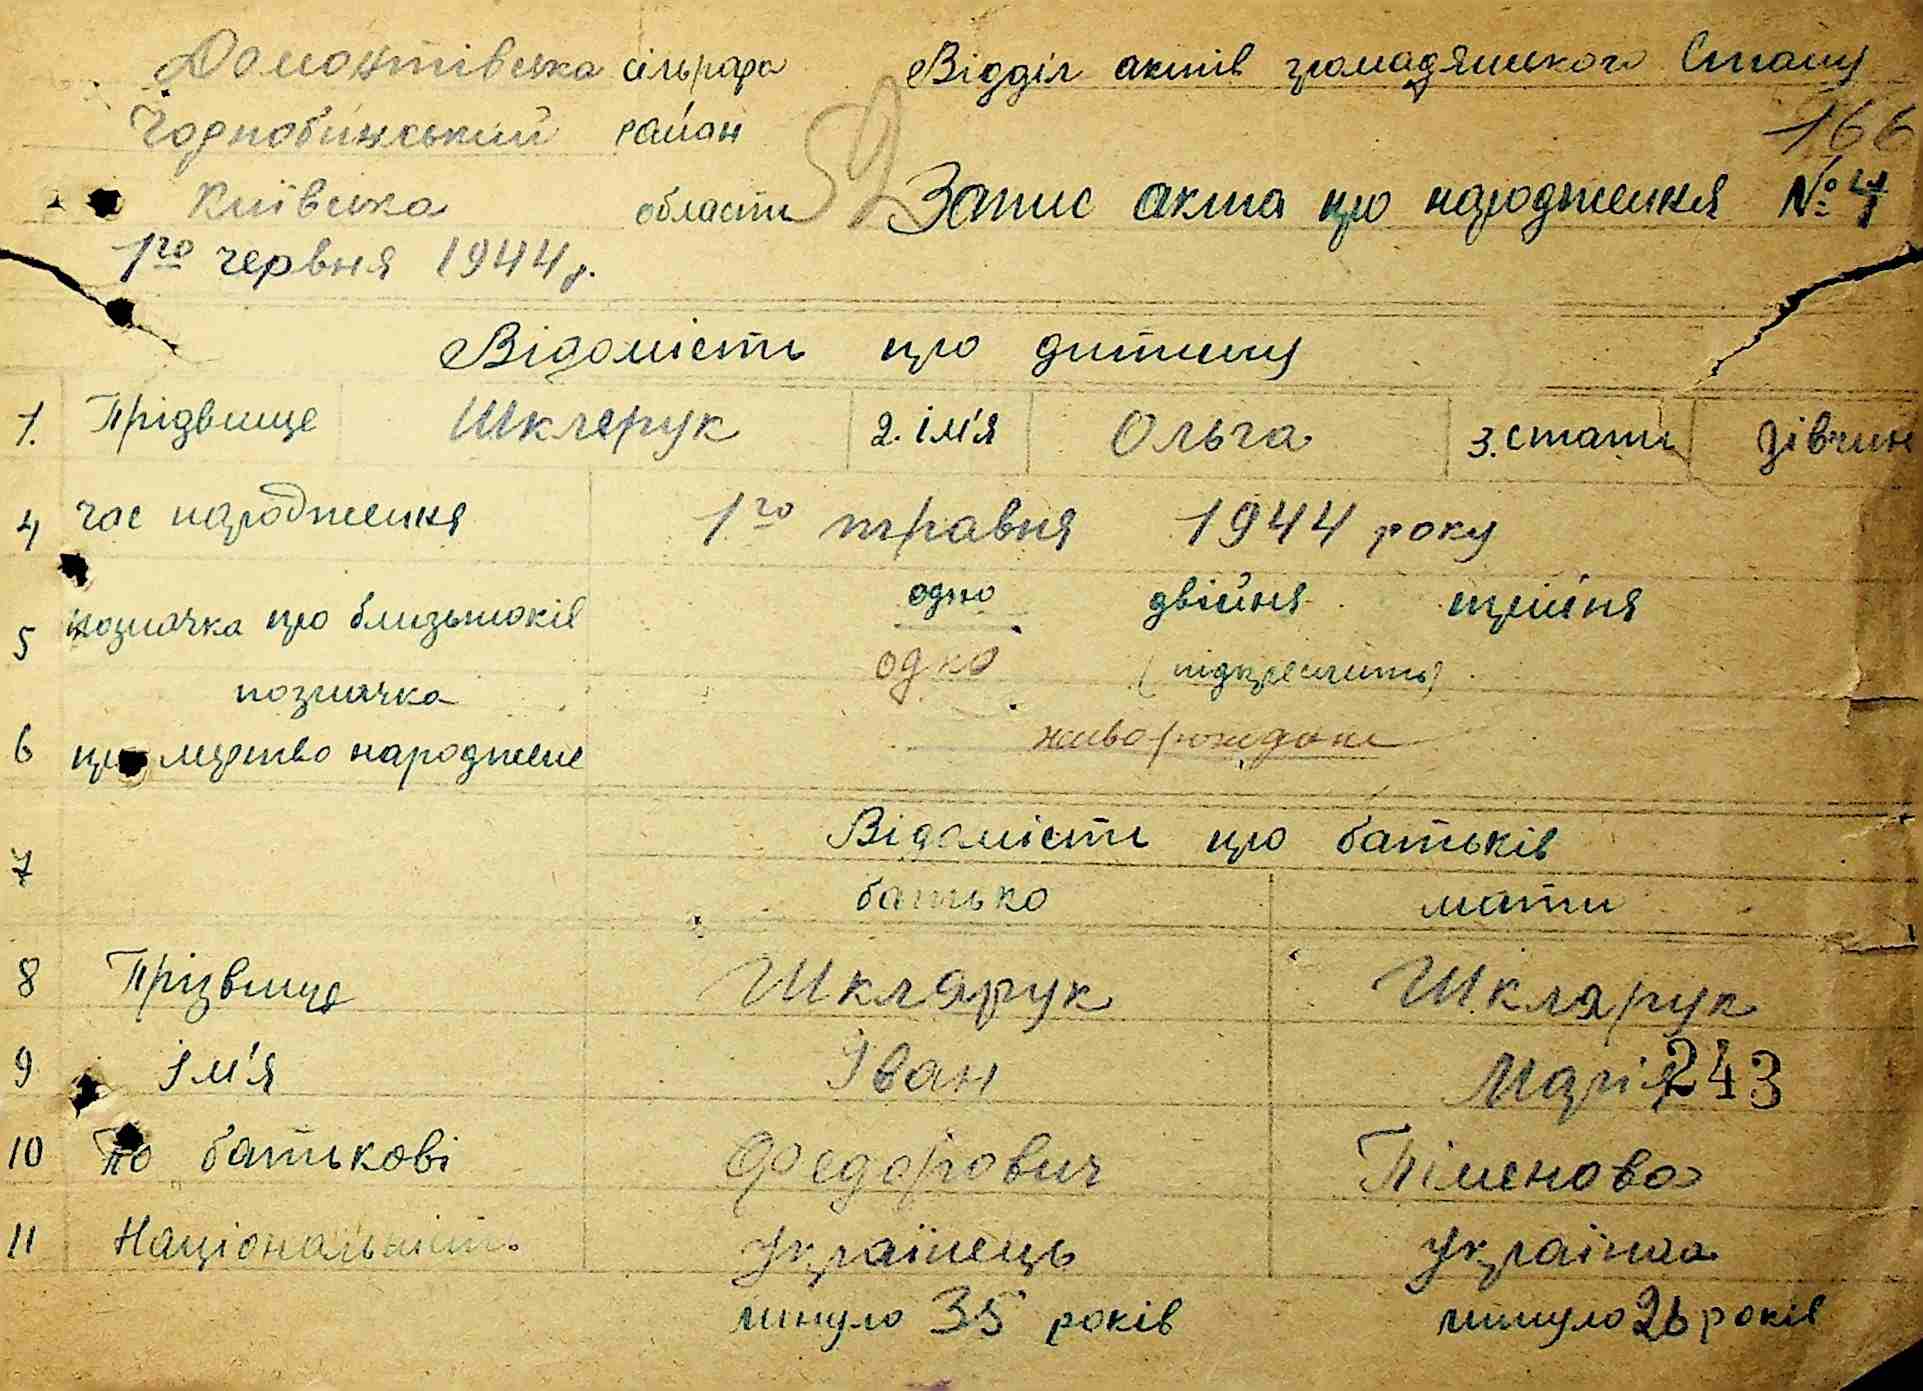 Домонтівська сільрада Відділ актів громадянського Стану
Чорнобиїнський район 166
52
Київська области Запис акта про народження № 4
1го червня 1944 р.
Відомість про дитину
1. Прідвище Шклерук 2. ім'я Ольга 3. стать дівчин
4 час народження 1го травня 1944 року
5 позначка про близьнюків одно двійня трийня
одно (підкреслить)
позначка
6 про мертво народжене живорождене
7 Відомість про батьків
батько мати
8 Прізвище Шклярук Шклярук
9 Ім'я Іван Марія 243
10 По батькові Федорович Піменова
11 Національність Українець Українка
минуло 35 років минуло 26 років